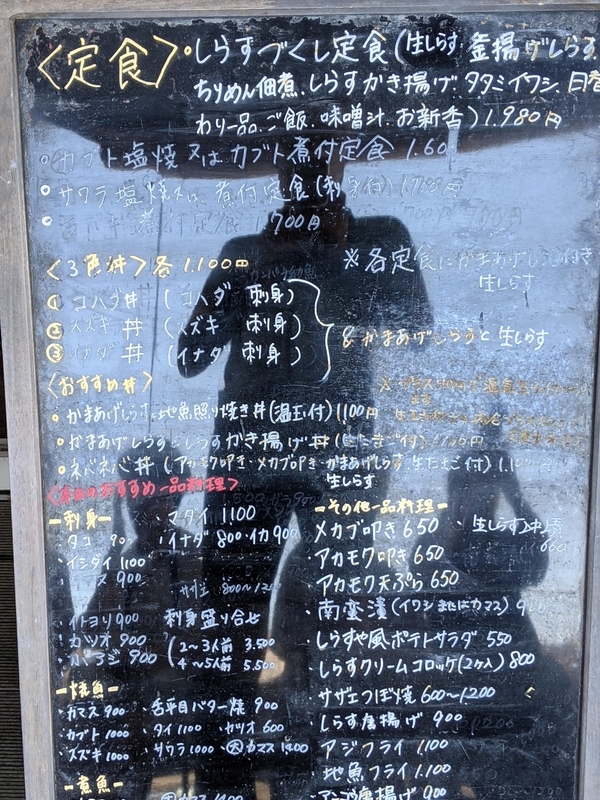 〈定食〉
しらすづくし定食(生しらす 釜揚げしらす
ちりめん佃煮、しらすかき揚げ、タタミイワシ、日替
わり一品、ご飯、味噌汁、お新香)1.980円
カブト塩焼又はカブト煮付定食 1.60
サワラ塩焼又は、煮付定食(刺身付)
煮付定食 1.700円
〈3色丼〉各1.100円
※各定食にかまあげしらす付き
生しらす
①コハダ丼(コハダ 刺身)
②スズキ丼(スズキ 刺身)
③イナダ丼(イナダ 刺身)
& かまあげしらすと生しらす
〈おすすめ丼〉
かまあげしらす・地魚照り焼き丼(温玉付)1100円
かまあげしらすとしらすかき揚げ丼(生たまご付)1.100円
ネバネバ丼(アカモク叩き・メカブ叩き・かまあげしらす、生たまご付)
生しらす
〈本日のおすすめ一品料理〉
ー刺身ー
・マダイ 1100
タコ 900 ・イナダ 800・イカ 900
イシダイ 1100
カマス 900
800〜1200
イトヨリ 900 刺身盛り合せ
カツオ 900 (2〜3人前 3.500
900 4〜5人前 5.500
ー焼魚ー
カマス 900 ・舌平目バター焼 900
カブト 1000 ・タイ 1100 ・カツオ 600
スズキ 1000 ・サワラ 1000 ・大カマス 1400
ー煮魚ー
ーその他一品料理ー
メカブ叩き 650 ・生しらす沖漬
660
アカモク叩き 650
アカモク天ぷら 650
・南蛮漬(イワシまたはカマス)900
しらすや風ポテトサラダ 550
・しらすクリームコロッケ(2ヶ入)800
サザエつぼ焼 600〜1200
・しらす唐揚げ 900
・アジフライ 1.100
・地魚フライ 1.100
・アナゴ唐揚げ 900